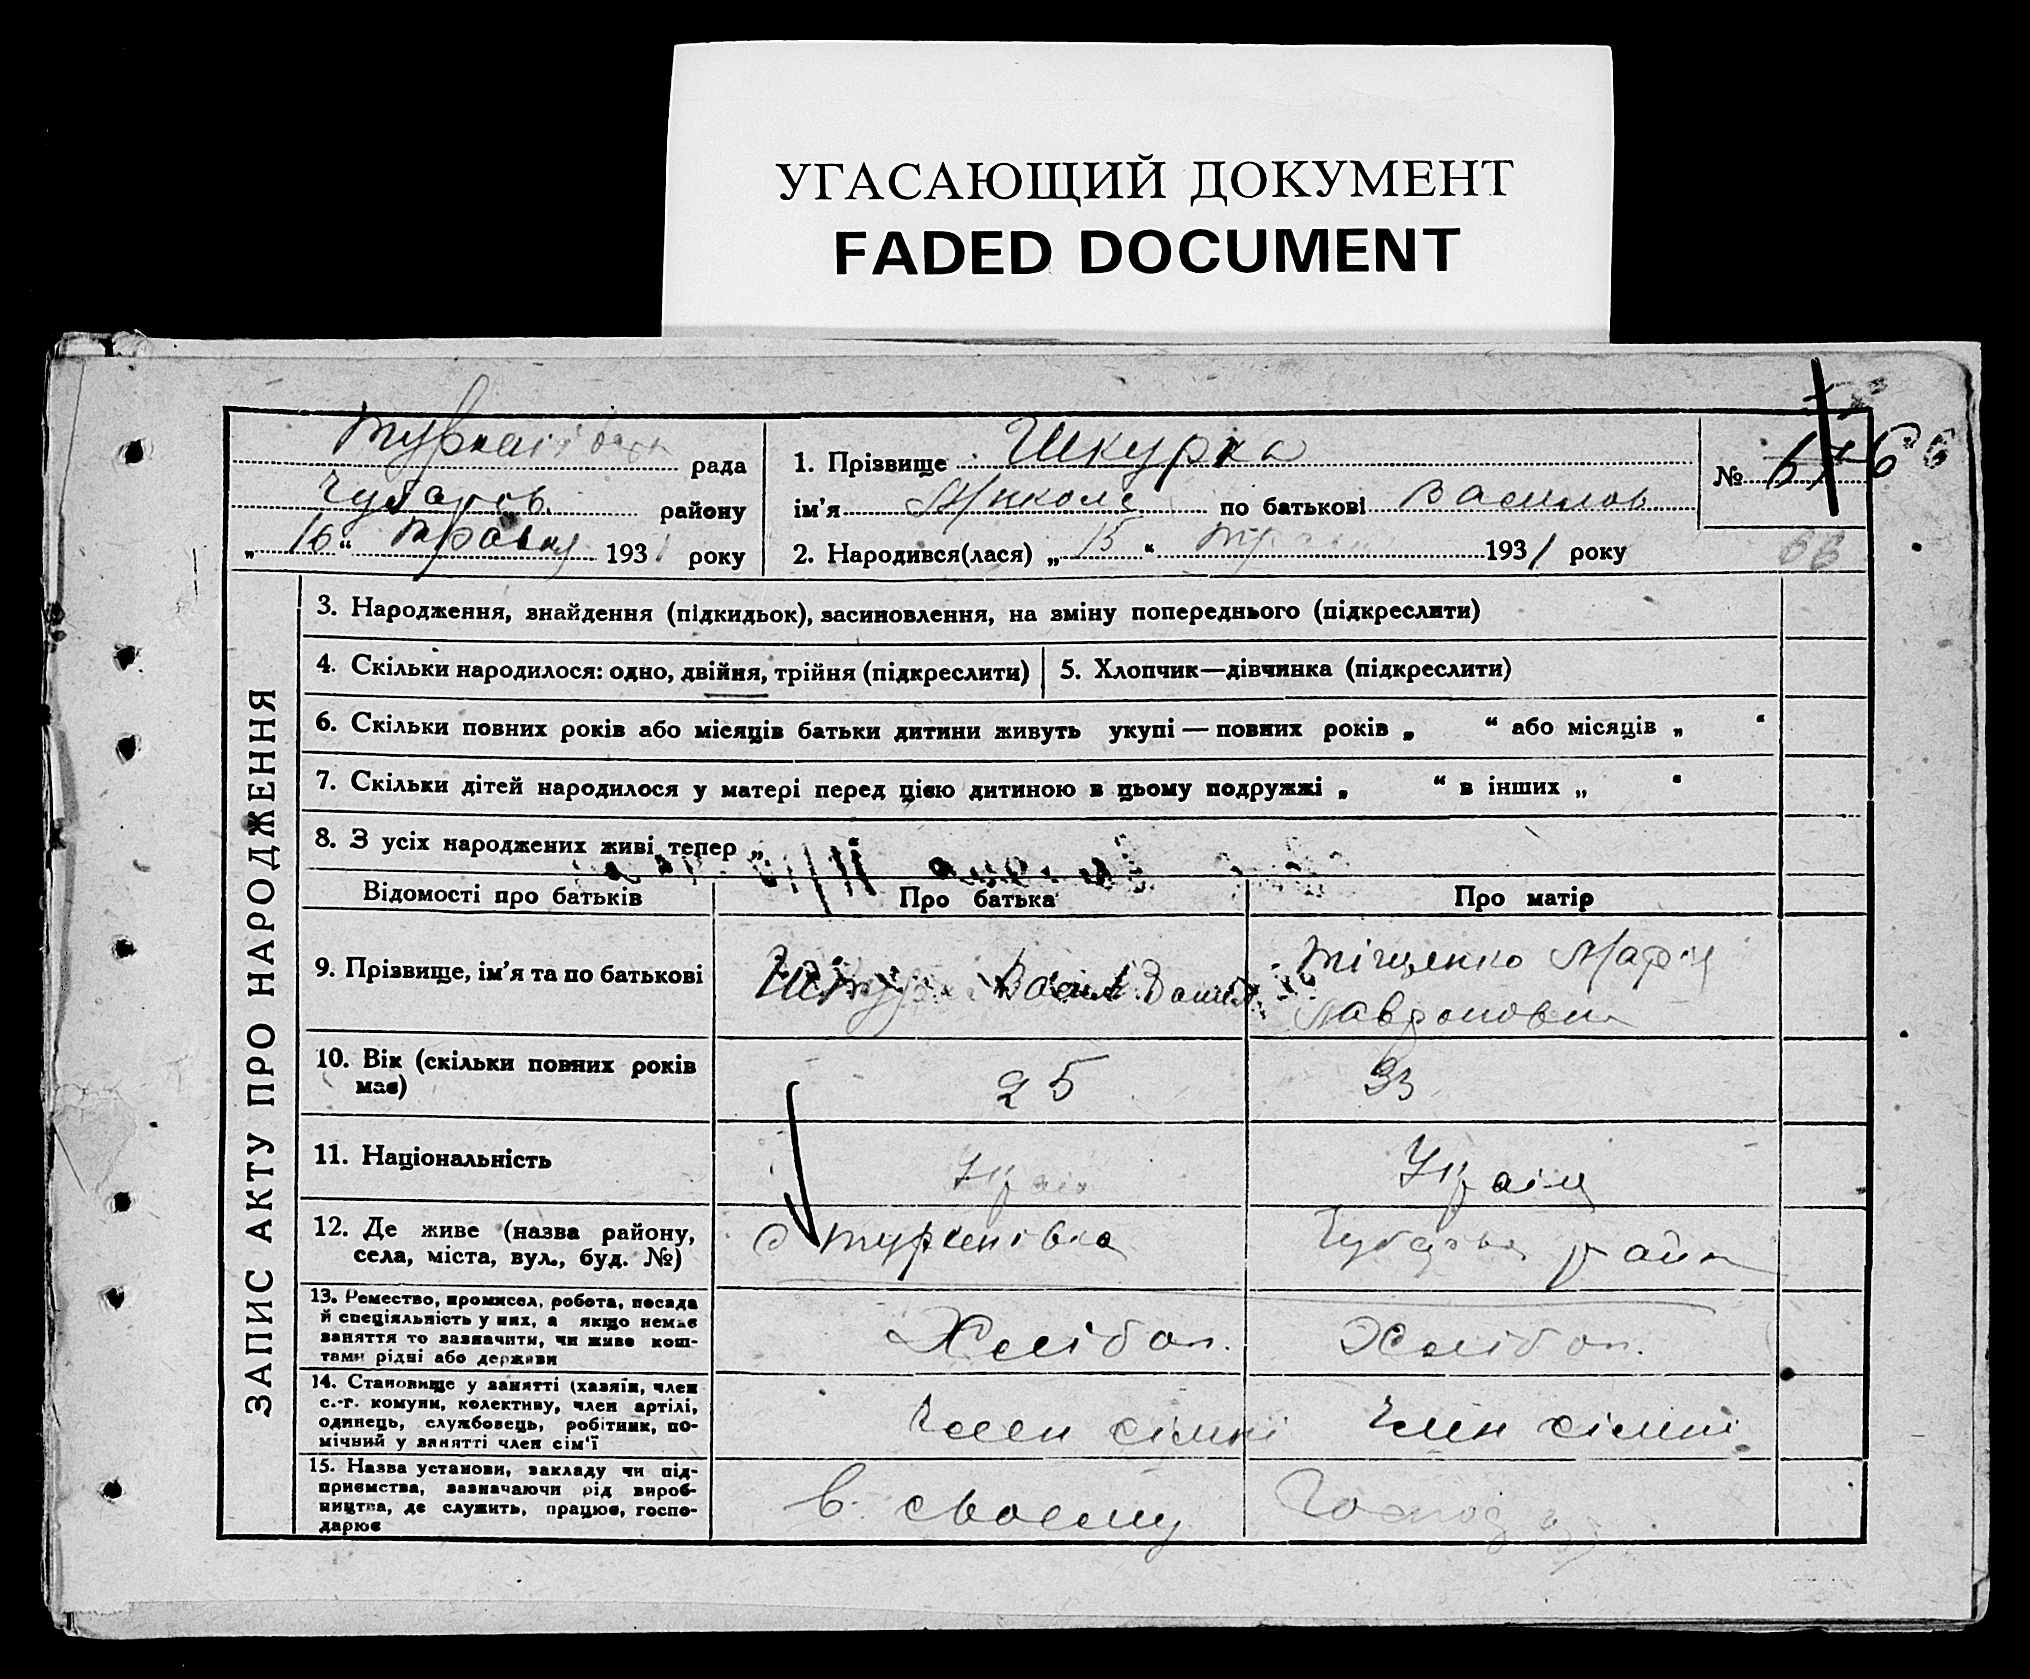 УГАСАЮЩИЙ ДОКУМЕНТ
FADED DOCUMENT
рада
Чубаров. району
„ 16 “ травня 1931 року
1. Прізвище Шкурка
ім'я Микола по батькові Василов
2. Народився(лася) „ 15 “ 1931 року
№ 66
66
ЗАПИС АКТУ ПРО НАРОДЖЕННЯ
3. Народження, знайдення (підкидьок), засиновлення, на зміну попереднього (підкреслити)
4. Скільки народилося: одно, двійня, трійня (підкреслити)
5. Хлопчик—дівчинка (підкреслити)
6. Скільки повних років або місяців батьки дитини живуть укупі — повних років „ “ або місяців „ “
7. Скільки дітей народилося у матері перед цією дитиною в цьому подружжі „ “ в інших „ “
8. З усіх народжених живі тепер „
Відомості про батьків
Про батька
Про матір
9. Прізвище, ім'я та по батькові
Васил
Тіщенко Марія
10. Вік (скільки повних років
має)
25
33
11. Національність
Україн
12. Де живе (назва району,
села, міста, вул., буд. №)
с Туркенівка
район
13. Ремество, промисел, робота, посада
й спеціяльність у них, а якщо немає
заняття то зазначити, чи живе кош-
тами рідні або держави
Хлібор.
Хлібор.
14. Становище у занятті (хазяїн, член
с.-г. комуни, колективу, член артілі,
одинець, службовець, робітник, по-
мічний у занятті член сім'ї
Член сімні
Член сімні
15. Назва установи, закладу чи під-
приємства, зазначаючи рід вироб-
ництва, де служить, працює, госпо-
дарює
в своєму